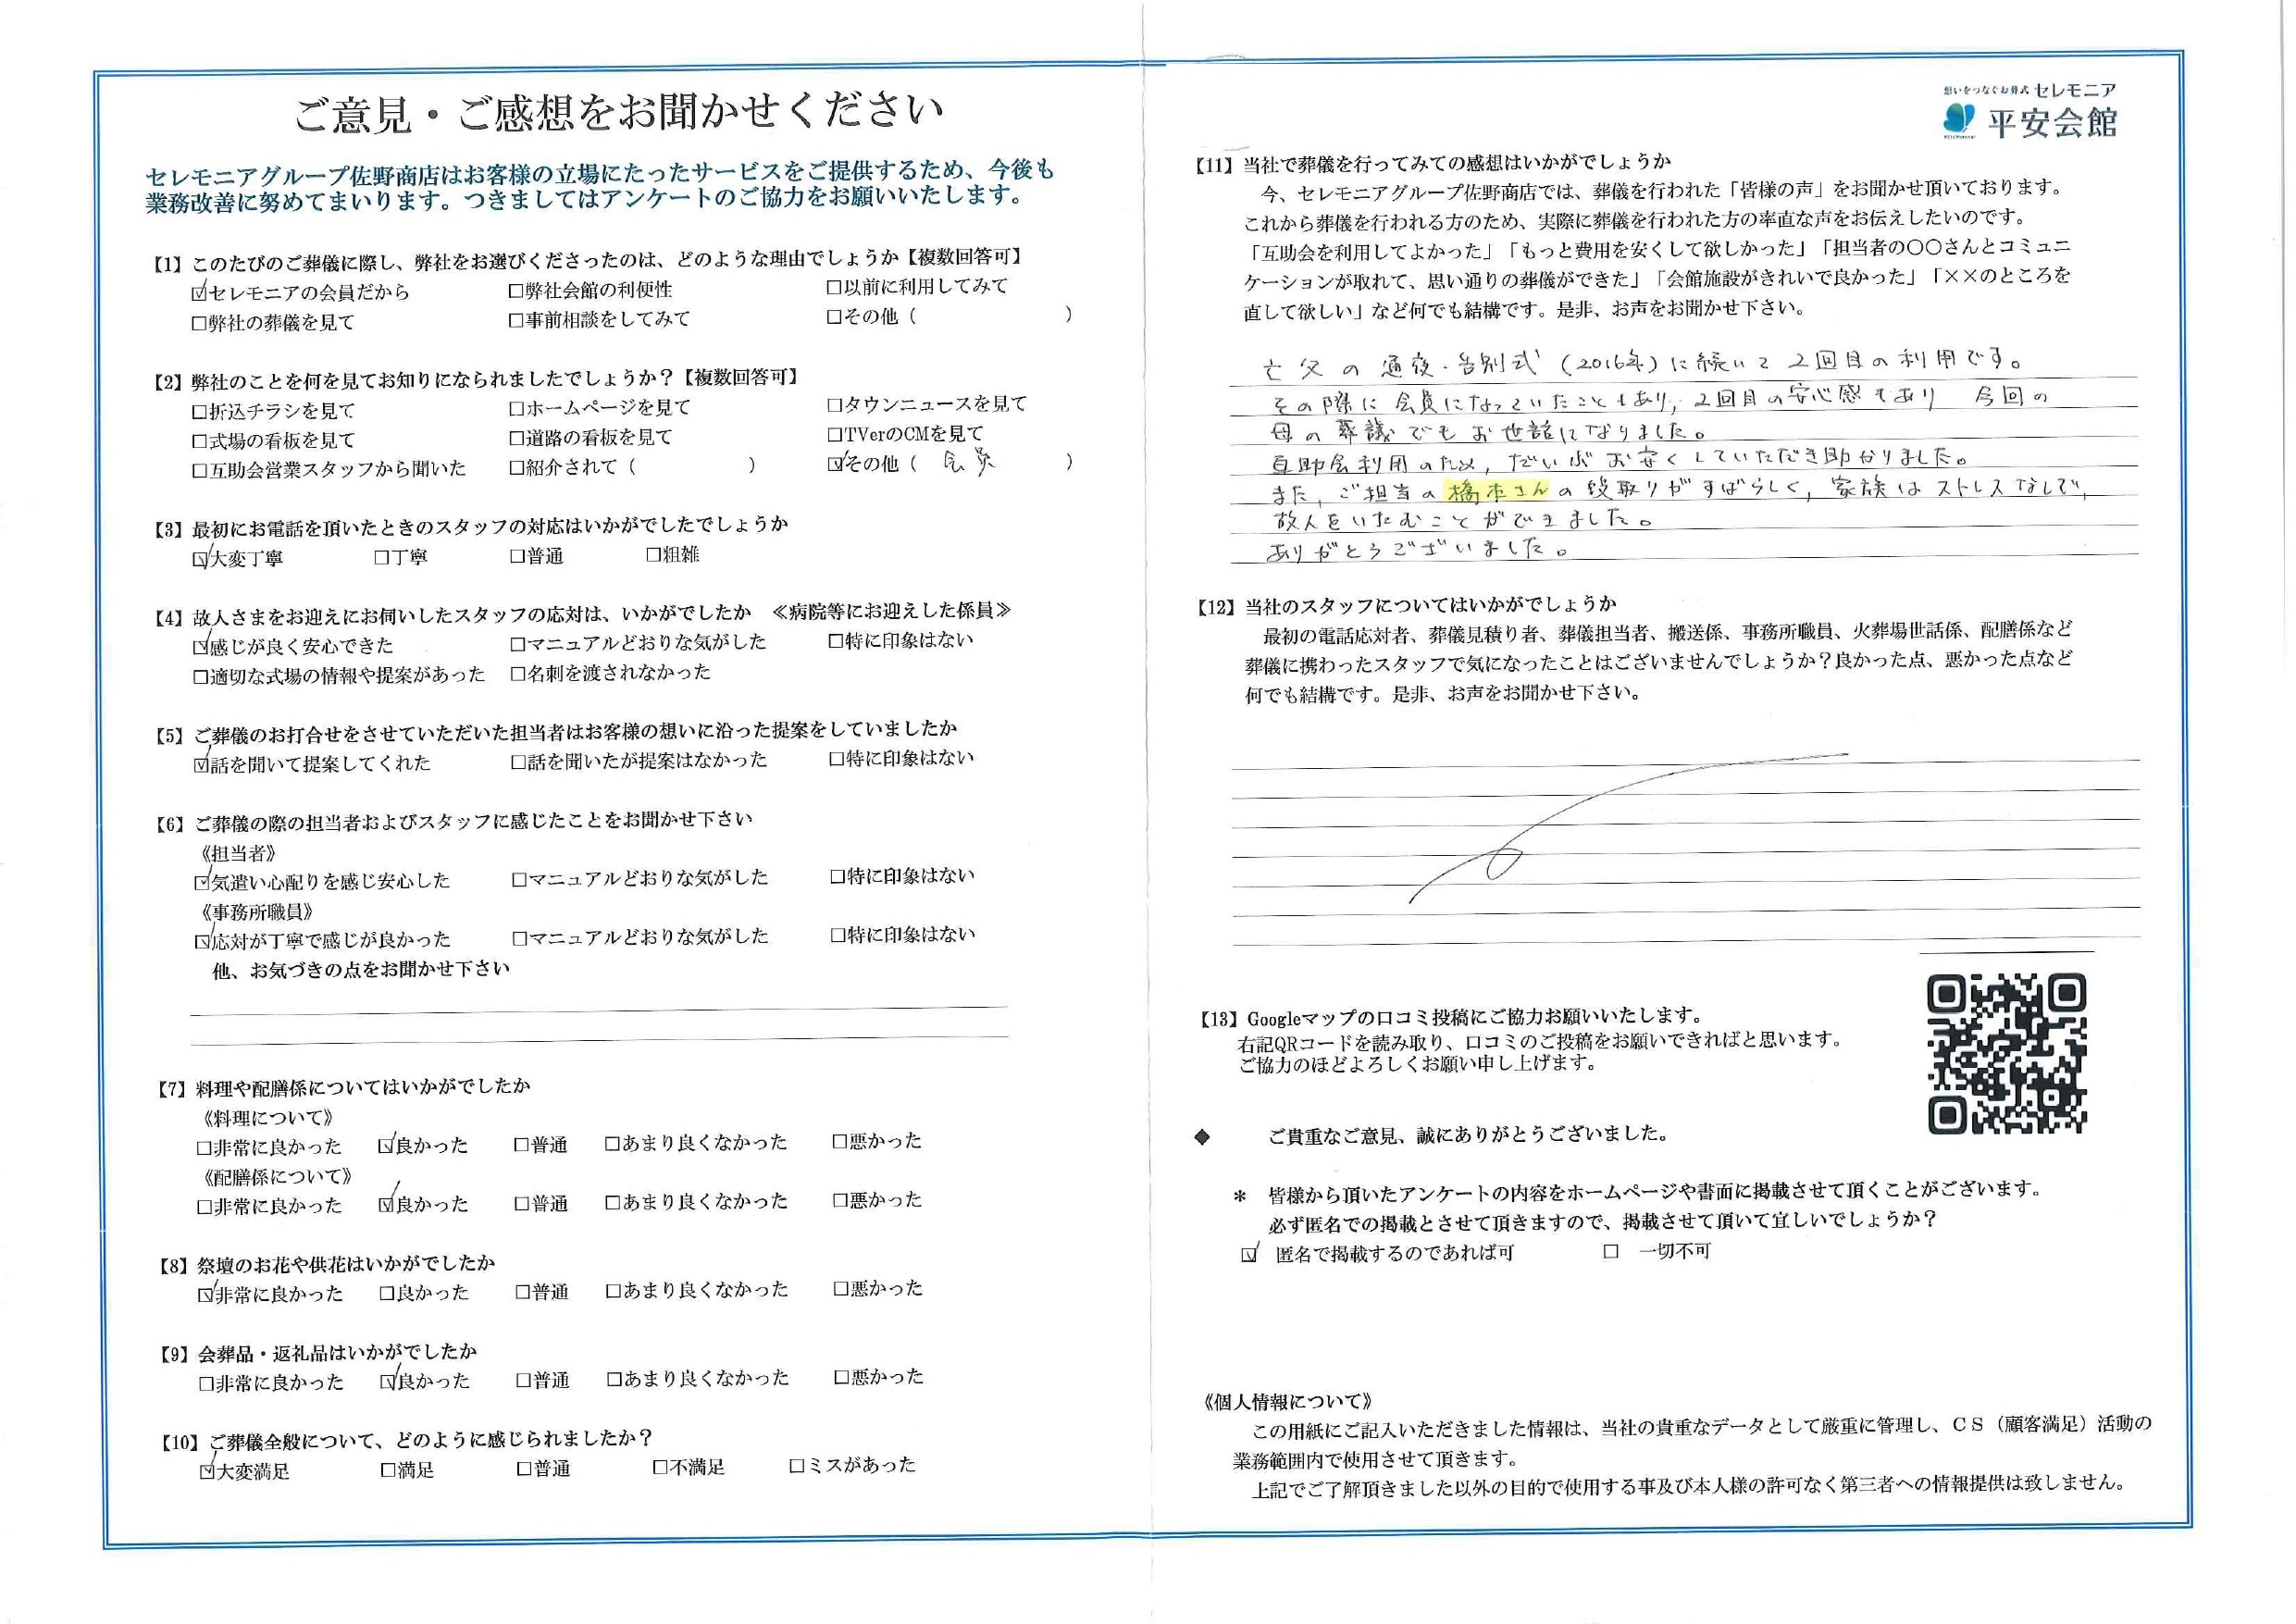 ご意見・ご感想をお聞かせください
セレモニアグループ佐野商店はお客様の立場にたったサービスをご提供するため、今後も
業務改善に努めてまいります。つきましてはアンケートのご協力をお願いいたします。
【1】このたびのご葬儀に際し、弊社をお選びくださったのは、どのような理由でしょうか【複数回答可】
☑セレモニアの会員だから □弊社会館の利便性 □以前に利用してみて
□弊社の葬儀を見て □事前相談をしてみて □その他（ ）
【2】弊社のことを何を見てお知りになられましたでしょうか？【複数回答可】
□折込チラシを見て □ホームページを見て □タウンニュースを見て
□式場の看板を見て □道路の看板を見て □TVerのCMを見て
□互助会営業スタッフから聞いた □紹介されて（ ） ☑その他（ 会員 ）
【3】最初にお電話を頂いたときのスタッフの対応はいかがでしたでしょうか
☑大変丁寧 □丁寧 □普通 □粗雑
【4】故人さまをお迎えにお伺いしたスタッフの応対は、いかがでしたか ≪病院等にお迎えした係員≫
☑感じが良く安心できた □マニュアルどおりな気がした □特に印象はない
□適切な式場の情報や提案があった □名刺を渡されなかった
【5】ご葬儀のお打合せをさせていただいた担当者はお客様の想いに沿った提案をしていましたか
☑話を聞いて提案してくれた □話を聞いたが提案はなかった □特に印象はない
【6】ご葬儀の際の担当者およびスタッフに感じたことをお聞かせ下さい
《担当者》
☑気遣い心配りを感じ安心した □マニュアルどおりな気がした □特に印象はない
《事務所職員》
☑応対が丁寧で感じが良かった □マニュアルどおりな気がした □特に印象はない
他、お気づきの点をお聞かせ下さい
【7】料理や配膳係についてはいかがでしたか
《料理について》
□非常に良かった ☑良かった □普通 □あまり良くなかった □悪かった
《配膳係について》
□非常に良かった ☑良かった □普通 □あまり良くなかった □悪かった
【8】祭壇のお花や供花はいかがでしたか
☑非常に良かった □良かった □普通 □あまり良くなかった □悪かった
【9】会葬品・返礼品はいかがでしたか
□非常に良かった ☑良かった □普通 □あまり良くなかった □悪かった
【10】ご葬儀全般について、どのように感じられましたか？
☑大変満足 □満足 □普通 □不満足 □ミスがあった
想いをつなぐお葬式 セレモニア
平安会館
【11】当社で葬儀を行ってみての感想はいかがでしょうか
今、セレモニアグループ佐野商店では、葬儀を行われた「皆様の声」をお聞かせ頂いております。
これから葬儀を行われる方のため、実際に葬儀を行われた方の率直な声をお伝えしたいのです。
「互助会を利用してよかった」「もっと費用を安くして欲しかった」「担当者の〇〇さんとコミュニ
ケーションが取れて、思い通りの葬儀ができた」「会館施設がきれいで良かった」「××のところを
直して欲しい」など何でも結構です。是非、お声をお聞かせ下さい。
亡父の通夜・告別式（2016年）に続いて2回目の利用です。
その際に会員になっていたこともあり、2回目の安心感もあり 今回の
母の葬議でもお世話になりました。
互助会利用のため、だいぶお安くしていただき助かりました。
また、ご担当の橋本さんの段取りがすばらしく、家族はストレスなしで、
故人をいたむことができました。
ありがとうございました。
【12】当社のスタッフについてはいかがでしょうか
最初の電話応対者、葬儀見積り者、葬儀担当者、搬送係、事務所職員、火葬場世話係、配膳係など
葬儀に携わったスタッフで気になったことはございませんでしょうか？良かった点、悪かった点など
何でも結構です。是非、お声をお聞かせ下さい。
【13】Googleマップの口コミ投稿にご協力お願いいたします。
右記QRコードを読み取り、口コミのご投稿をお願いできればと思います。
ご協力のほどよろしくお願い申し上げます。
◆ ご貴重なご意見、誠にありがとうございました。
＊ 皆様から頂いたアンケートの内容をホームページや書面に掲載させて頂くことがございます。
必ず匿名での掲載とさせて頂きますので、掲載させて頂いて宜しいでしょうか？
☑ 匿名で掲載するのであれば可 □ 一切不可
《個人情報について》
この用紙にご記入いただきました情報は、当社の貴重なデータとして厳重に管理し、ＣＳ（顧客満足）活動の
業務範囲内で使用させて頂きます。
上記でご了解頂きました以外の目的で使用する事及び本人様の許可なく第三者への情報提供は致しません。